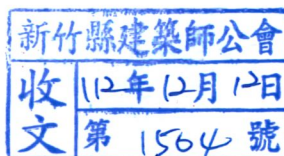 新竹縣建築師公會
收文
112年12月12日
第 1564 號